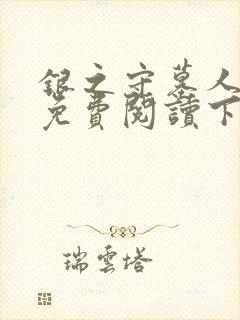 銀之守墓人
免費閱讀下
瑞雲塔